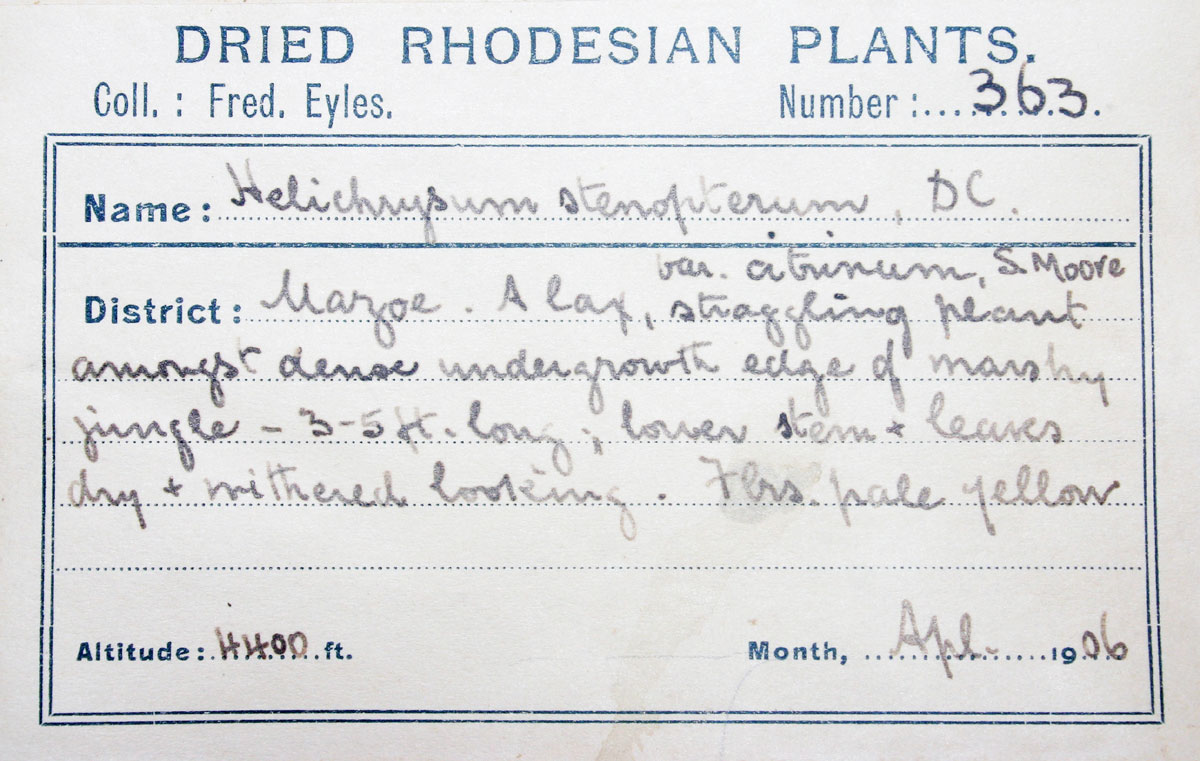 DRIED RHODESIAN PLANTS.
Coll. : Fred. Eyles. Number : 363.
Name: Helichrysum stenopterum, DC.
var. citrinum, S. Moore
District: Mazoe. A lax, straggling plant
amongst dense undergrowth edge of marshy
jungle - 3-5 ft. long; lower stem + leaves
dry + withered looking. Flrs. pale yellow
Altitude: 4400 ft. Month, Apl. 1906